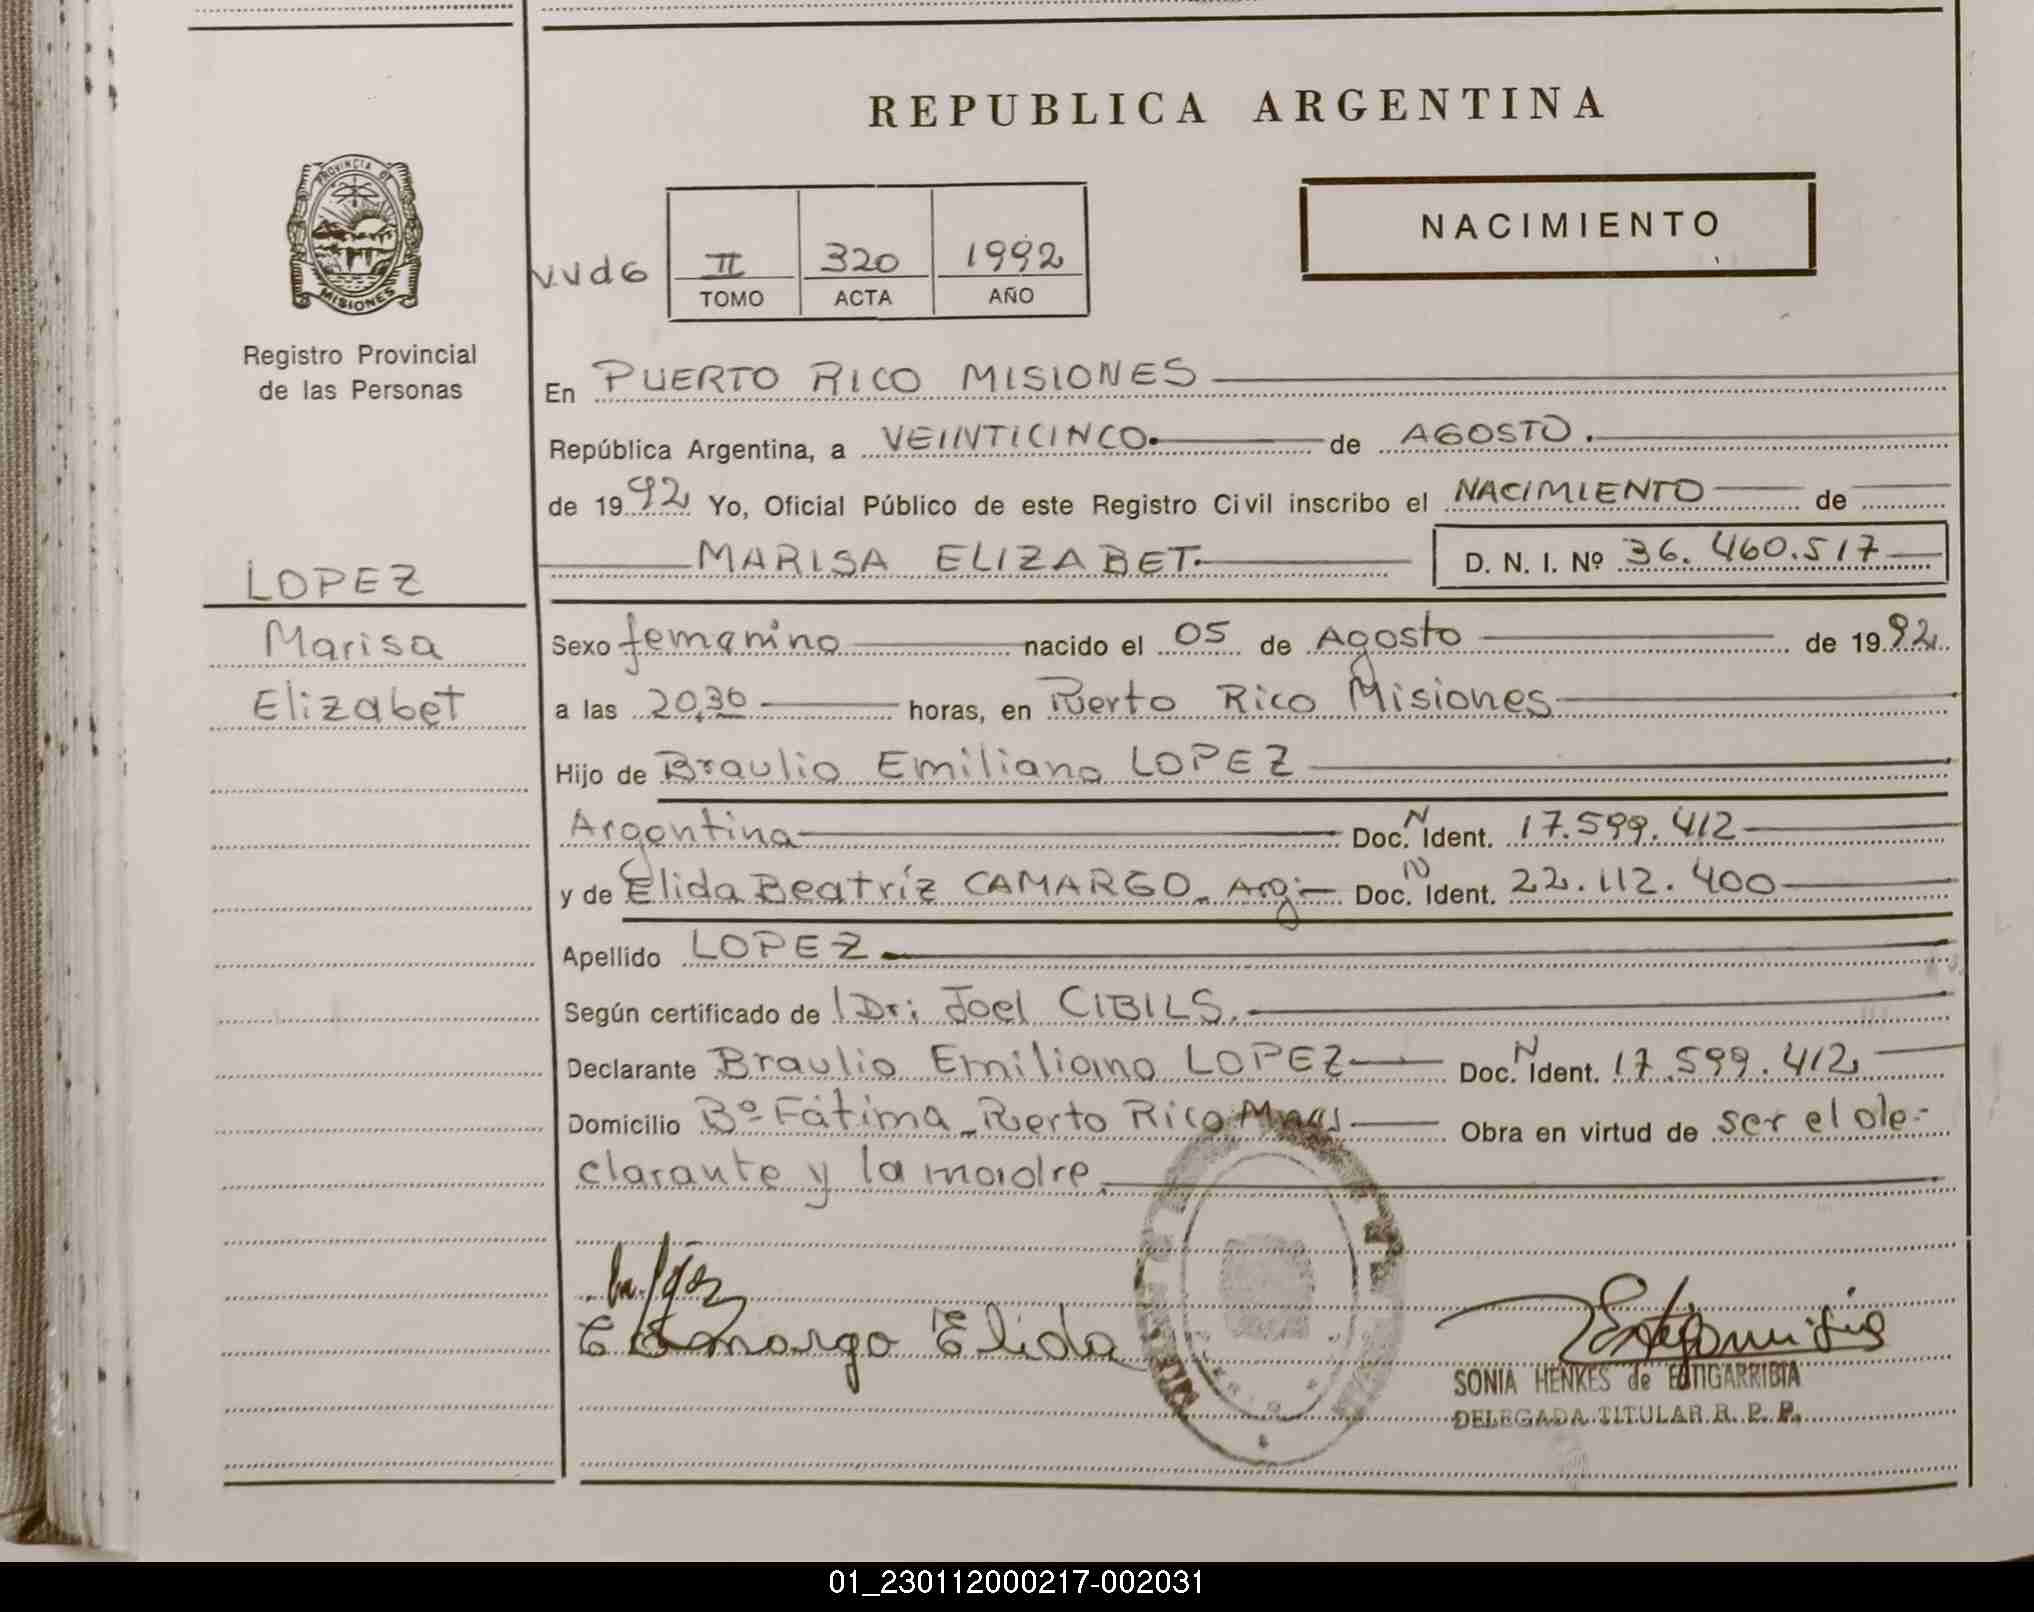 REPUBLICA ARGENTINA
PROVINCIA DE
MISIONES
Registro Provincial
de las Personas
NACIMIENTO
II 320 1992
TOMO ACTA AÑO
En PUERTO RICO MISIONES
República Argentina, a VEINTICINCO. de AGOSTO.
de 1992 Yo, Oficial Público de este Registro Civil inscribo el NACIMIENTO de
MARISA ELIZABET. D. N. I. Nº 36.460.517
LOPEZ
Marisa
Elizabet
Sexo femenino nacido el 05 de Agosto de 1992
a las 20,30 horas, en Puerto Rico Misiones
Hijo de Braulio Emiliano LOPEZ
Argentina Doc. N Ident. 17.599.412
y de Elida Beatríz CAMARGO - Arg. Doc. N Ident. 22.112.400
Apellido LOPEZ
Según certificado de Dr: Joel CIBILS.
Declarante Braulio Emiliano LOPEZ Doc. N Ident. 17.599.412
Domicilio Bº Fátima - Puerto Rico Mnes Obra en virtud de ser el de-
clarante y la madre.
Camargo Elida
SONIA HENKES de ESTIGARRIBIA
DELEGADA TITULAR R. P. P.
01_230112000217-002031